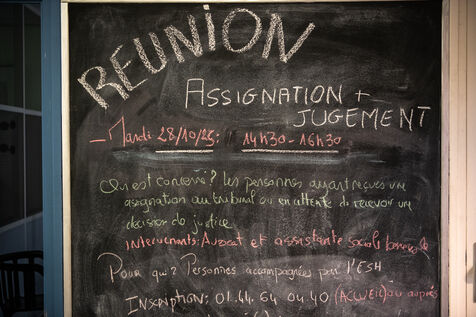 REUNION
ASSIGNATION +
JUGEMENT
- Mardi 28/10/25: 14h30-16h30
Qui est concerné? Les personnes ayant reçues un
asignation au tribunal ou en attente de recevoir une
décision de justice
Intervenants: Avocat et assistante sociale
Pour qui? Personnes accompagnées par l'ESH
INSCRIPTION: 01.44.64 04.40 (ACCUEIL) ou auprès